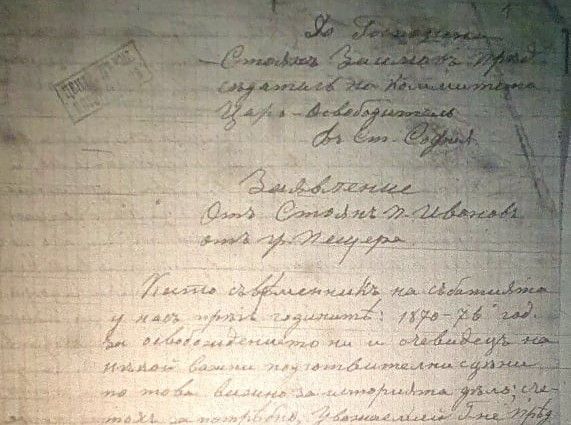 До Господина
Стоянъ Заимовъ Пред
седатель на Коммитета
Царь-Освободитель
Въ Ст. София
Заявление
Отъ Стоянъ П. Ивановъ
отъ гр. Пещера
Като съвременникъ на събитията
у насъ презъ годинитѣ: 1870-76 год.
за освобождението ни и очевидецъ на
нѣкои важни подготвителни сцѣни
по това важно за историята дѣло; сче-
тохъ за потрѣбно, Уважаемий Г-не Прѣд